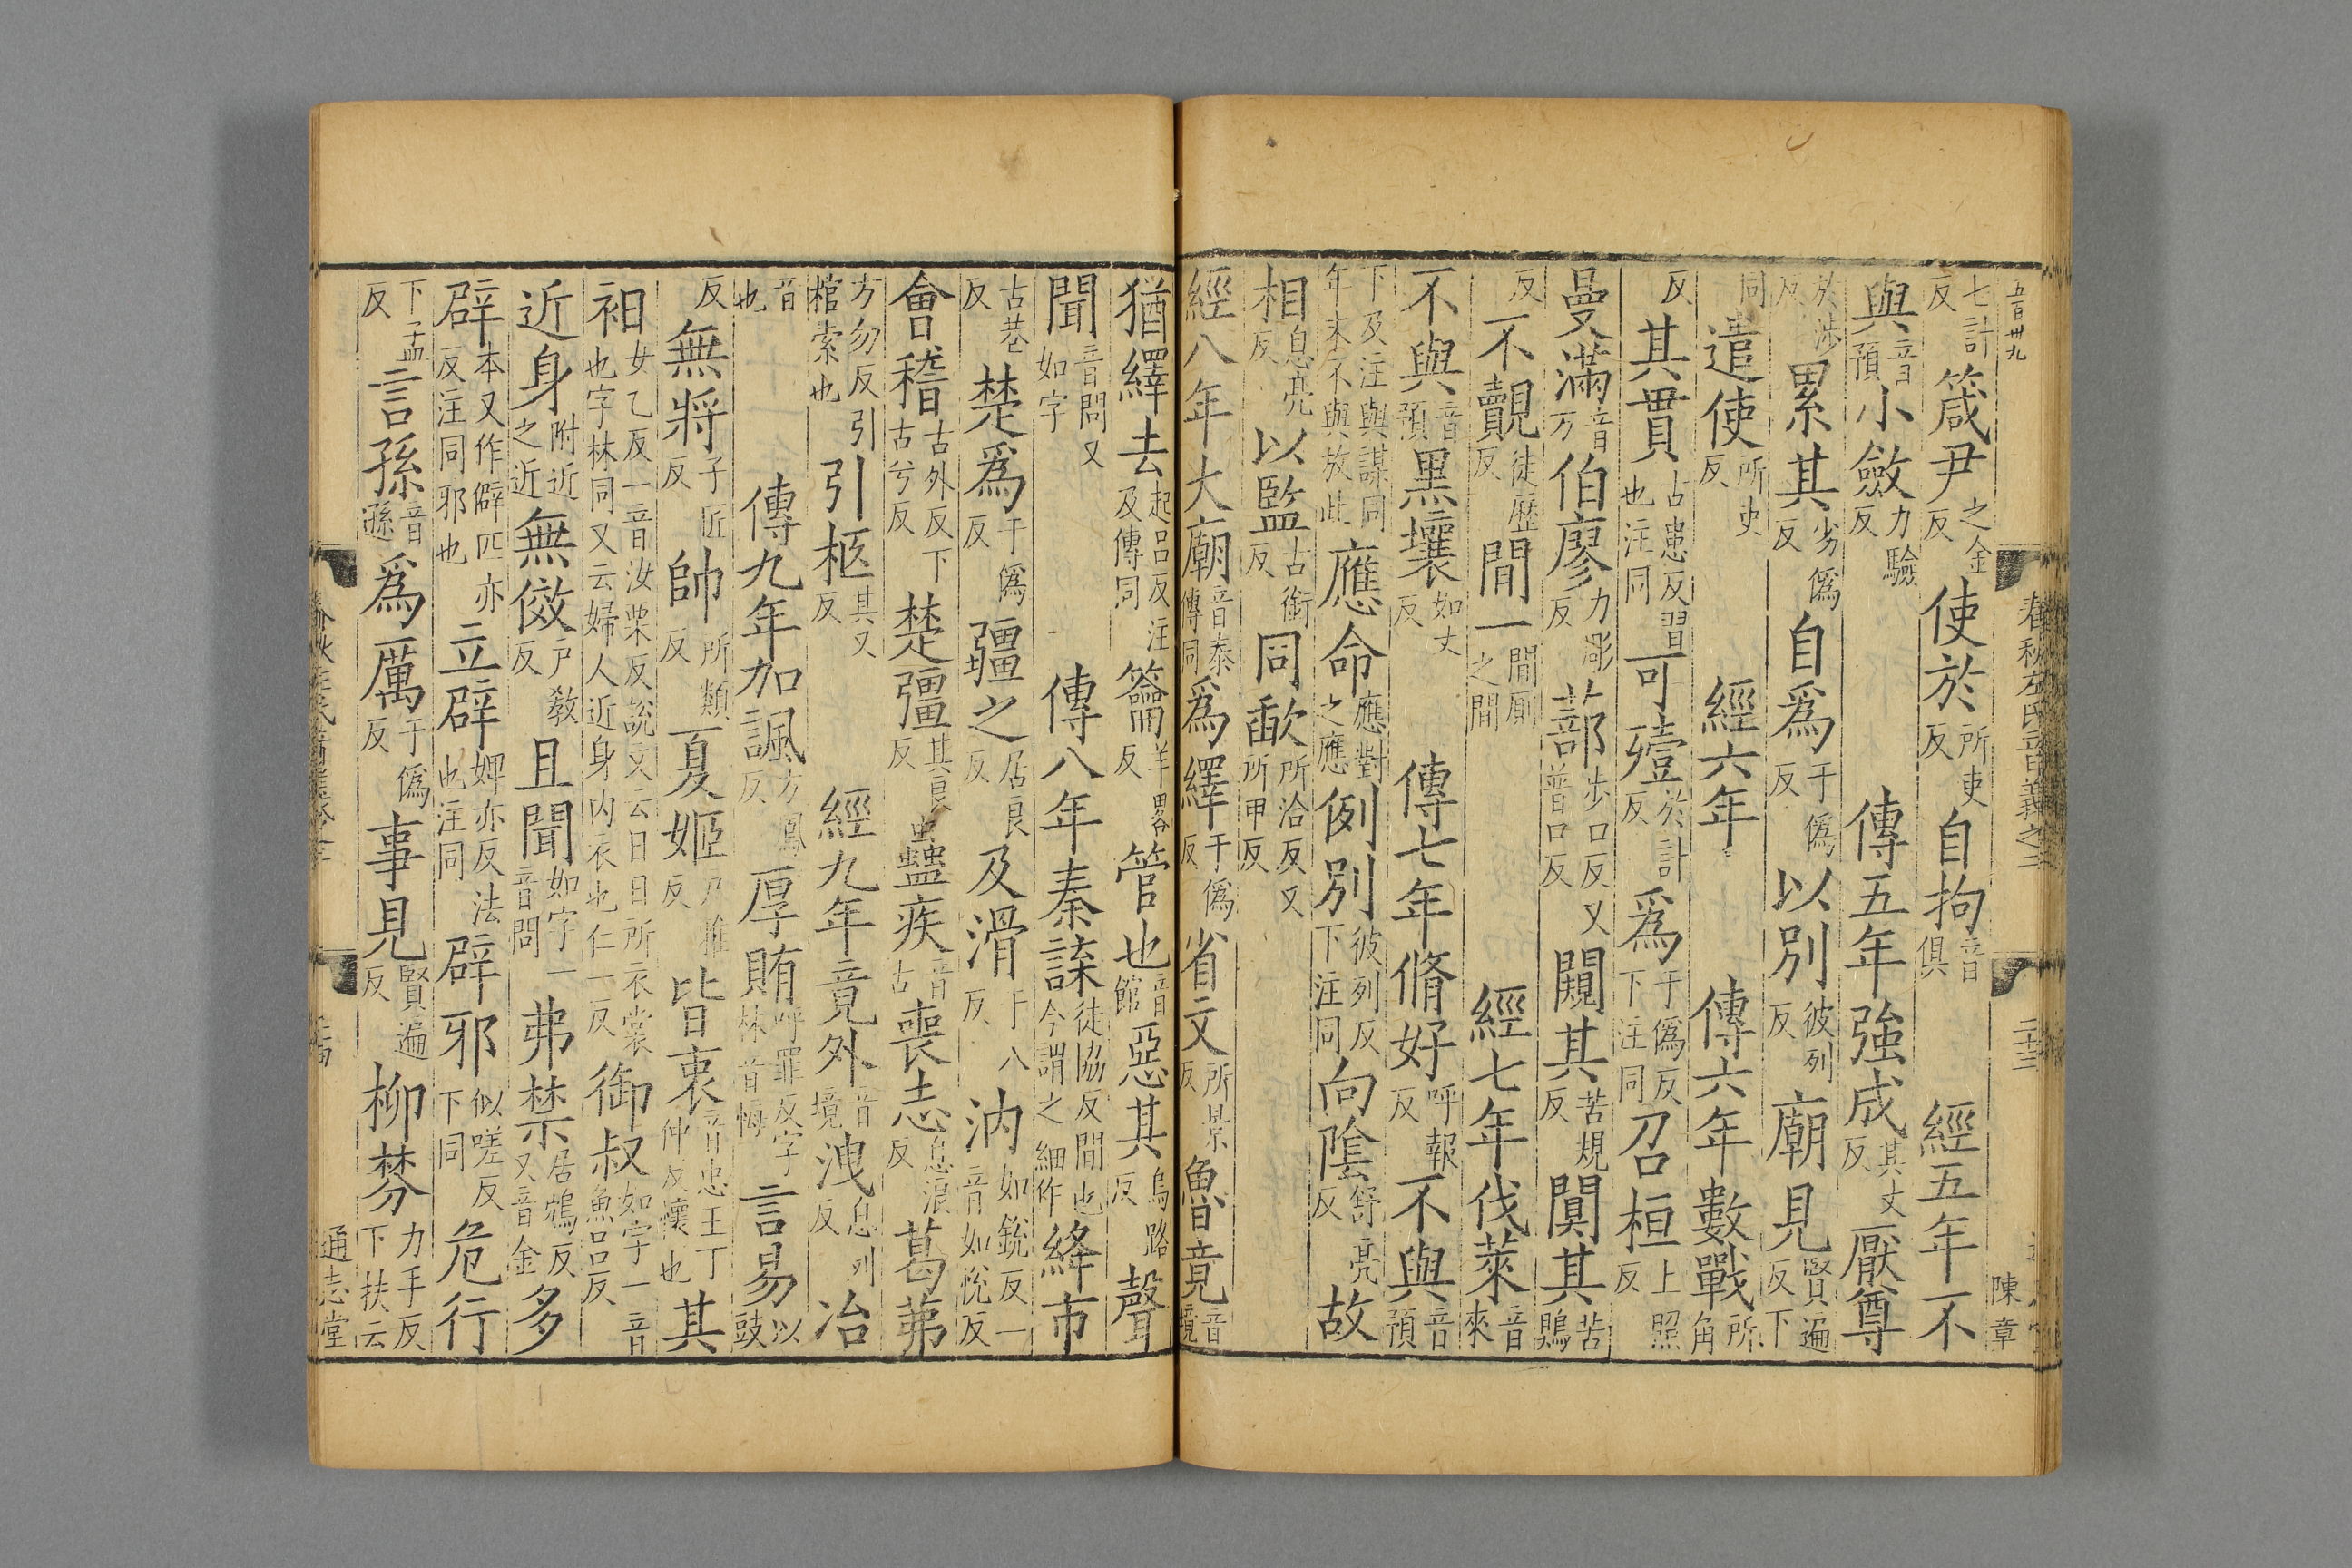 五百卌九
春秋左氏音義之二
二十三
陳章
七計反箴尹之金反使於所吏反自拘音俱經五年不
與音預小斂力驗反傳五年強成其丈反厭尊
於涉反累其劣僞反自爲于僞反以別彼列反廟見賢遍反下
同遣使所吏反經六年傳六年數戰所角
反其貫古患反習也注同可殪於計反爲于僞反下注同召桓上照反
曼滿音万伯廖力彫反蔀步口反又普口反闚其苦規反闃其苦鶪
反不覿徒歷反間一間厠之間經七年伐萊音來
不與音預黑壤如丈反傳七年脩好呼報反不與音預
下及注與謀同年末不與放此應命應對之應例別彼列反下注同向陰舒亮反故
相息亮反以監古銜反同歃所洽反又所甲反
經八年大廟音泰傳同爲繹于僞反省文所景反魯竟音境
猶繹去起呂反注及傳同籥羊畧反管也音館惡其烏路反聲
聞音問又如字傳八年秦諜徒協反間也今謂之細作絳市
古巷反楚爲于僞反疆之居良反及滑于八反汭如銳反一音如悅反
會稽古外反下古兮反楚彊其良反蠱疾音古喪志息浪反葛茀
方勿反引棺索也引柩其又反經九年竟外音境洩息列反冶
音也傳九年加諷方鳳反厚賄呼罪反字林音悔言易以豉
反無將子匠反帥所類反夏姬乃雅反皆衷音忠王丁仲反懷也其
衵女乙反一音汝栗反說文云日日所衣裳也字林同又云婦人近身内衣也仁一反御叔如字一音魚呂反
近身附近之近無傚戸教反且聞如字一音問弗禁居鴆反又音金多
辟本又作僻匹亦反注同邪也立辟婢亦反法也注同辟邪似嗟反下同危行
下孟反言孫音遜爲厲于僞反事見賢遍反柳棼力手反下扶云
通志堂